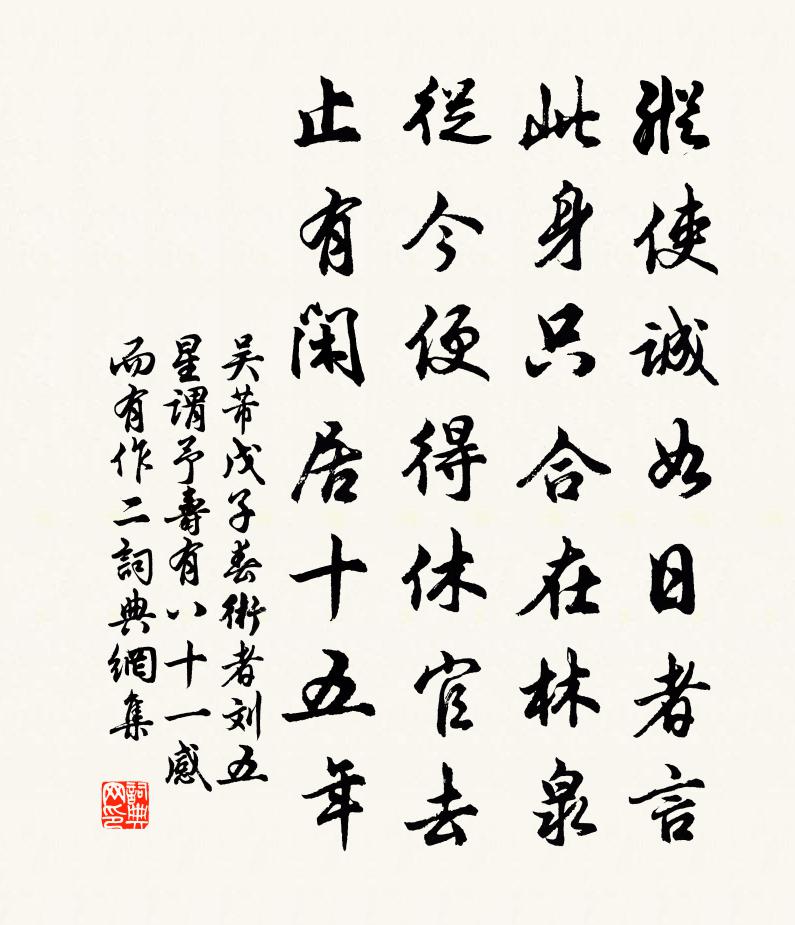 縱使誠如日者言
此身只合在林泉
從今便得休官去
止有閑居十五年
吴芾戊子春術者刘五
星謂予壽有八十一感
而有作二詞典網集
詞典网印